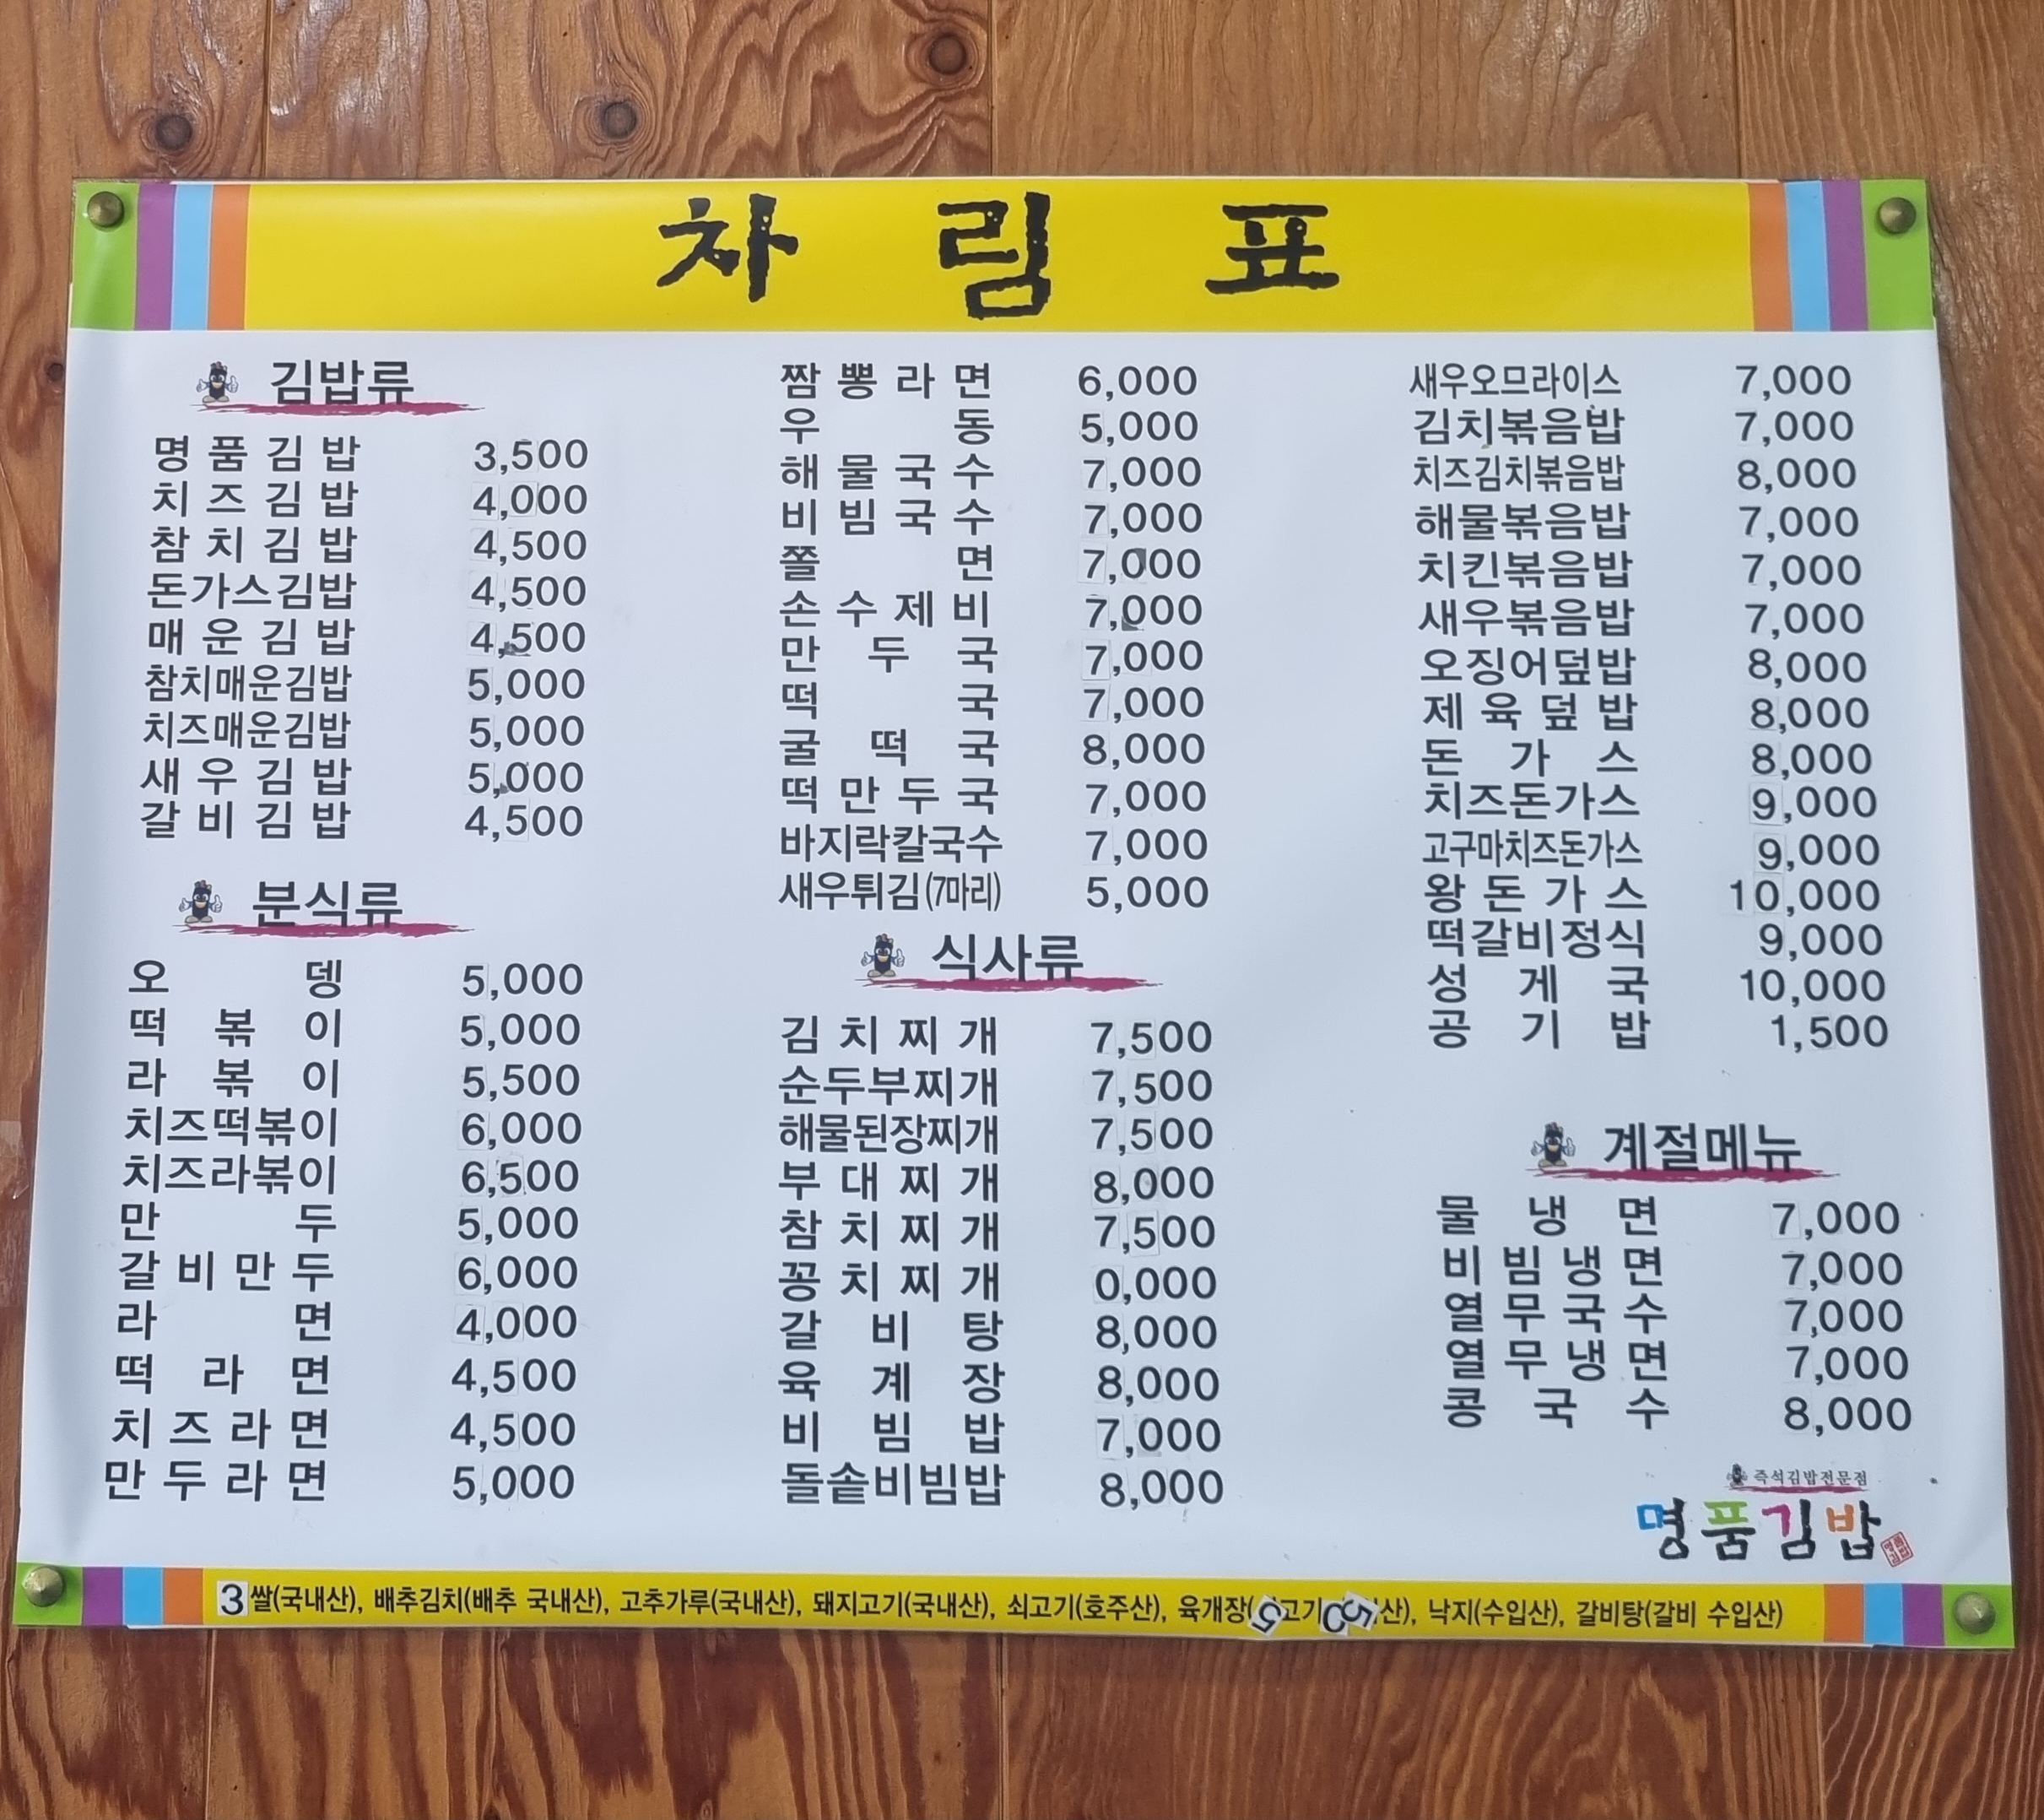 차림표
김밥류
명품김밥 3,500
치즈김밥 4,000
참치김밥 4,500
돈가스김밥 4,500
매운김밥 4,500
참치매운김밥 5,000
치즈매운김밥 5,000
새우김밥 5,000
갈비김밥 4,500
분식류
오뎅 5,000
떡볶이 5,000
라볶이 5,500
치즈떡볶이 6,000
치즈라볶이 6,500
만두 5,000
갈비만두 6,000
라면 4,000
떡라면 4,500
치즈라면 4,500
만두라면 5,000
짬뽕라면 6,000
우동 5,000
해물국수 7,000
비빔국수 7,000
쫄면 7,000
손수제비 7,000
만두국 7,000
떡국 7,000
굴떡국 8,000
떡만두국 7,000
바지락칼국수 7,000
새우튀김(7마리) 5,000
식사류
김치찌개 7,500
순두부찌개 7,500
해물된장찌개 7,500
부대찌개 8,000
참치찌개 7,500
꽁치찌개 0,000
갈비탕 8,000
육계장 8,000
비빔밥 7,000
돌솥비빔밥 8,000
새우오므라이스 7,000
김치볶음밥 7,000
치즈김치볶음밥 8,000
해물볶음밥 7,000
치킨볶음밥 7,000
새우볶음밥 7,000
오징어덮밥 8,000
제육덮밥 8,000
돈가스 8,000
치즈돈가스 9,000
고구마치즈돈가스 9,000
왕돈가스 10,000
떡갈비정식 9,000
성게국 10,000
공기밥 1,500
계절메뉴
물냉면 7,000
비빔냉면 7,000
열무국수 7,000
열무냉면 7,000
콩국수 8,000
즉석김밥전문점
명품김밥
3 쌀(국내산), 배추김치(배추 국내산), 고추가루(국내산), 돼지고기(국내산), 쇠고기(호주산), 육개장( 고기 산), 낙지(수입산), 갈비탕(갈비 수입산)